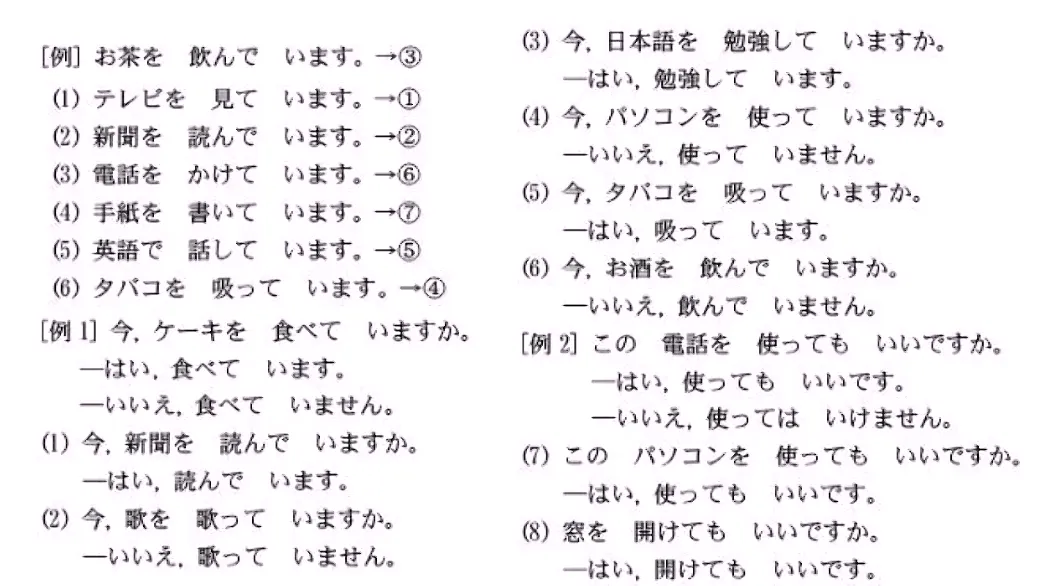 [例] お茶を 飲んで います。→③
(1) テレビを 見て います。→①
(2) 新聞を 読んで います。→②
(3) 電話を かけて います。→⑥
(4) 手紙を 書いて います。→⑦
(5) 英語で 話して います。→⑤
(6) タバコを 吸って います。→④
[例1] 今, ケーキを 食べて いますか。
—はい, 食べて います。
—いいえ, 食べて いません。
(1) 今, 新聞を 読んで いますか。
—はい, 読んで います。
(2) 今, 歌を 歌って いますか。
—いいえ, 歌って いません。
(3) 今, 日本語を 勉強して いますか。
—はい, 勉強して います。
(4) 今, パソコンを 使って いますか。
—いいえ, 使って いません。
(5) 今, タバコを 吸って いますか。
—はい, 吸って います。
(6) 今, お酒を 飲んで いますか。
—いいえ, 飲んで いません。
[例2] この 電話を 使っても いいですか。
—はい, 使っても いいです。
—いいえ, 使っては いけません。
(7) この パソコンを 使っても いいですか。
—はい, 使っても いいです。
(8) 窓を 開けても いいですか。
—はい, 開けても いいです。